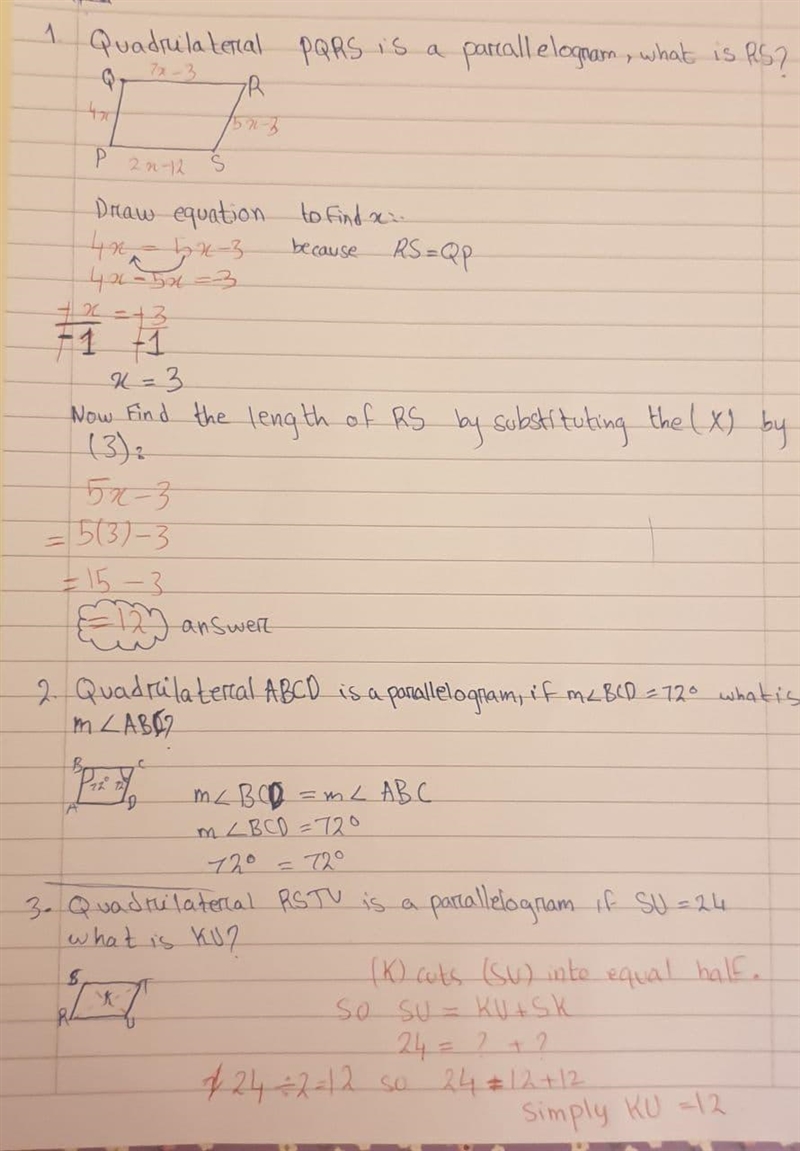 1. Quadrilateral PQRS is a parallelogram, what is RS?
7x-3
Q R
4x 5x-3
P 2x-12 S
Draw equation to find x:-
4x = 5x-3 because RS=QP
4x-5x=-3
-x = -3
-1 -1
x = 3
Now Find the length of RS by substituting the (X) by
(3):
5x-3
= 5(3)-3
= 15-3
= 12 answer
2. Quadrilateral ABCD is a parallelogram, if m∠BCD=72° what is
m∠ABC?
B C
72° 72
A D
m∠BCD = m∠ ABC
m∠BCD=72°
72° = 72°
3. Quadrilateral RSTU is a parallelogram if SU=24
what is KU?
S T
K
R U
(K) cuts (SU) into equal half.
So SU = KU+SK
24 = ? + ?
24÷2=12 so 24=12+12
Simply KU=12